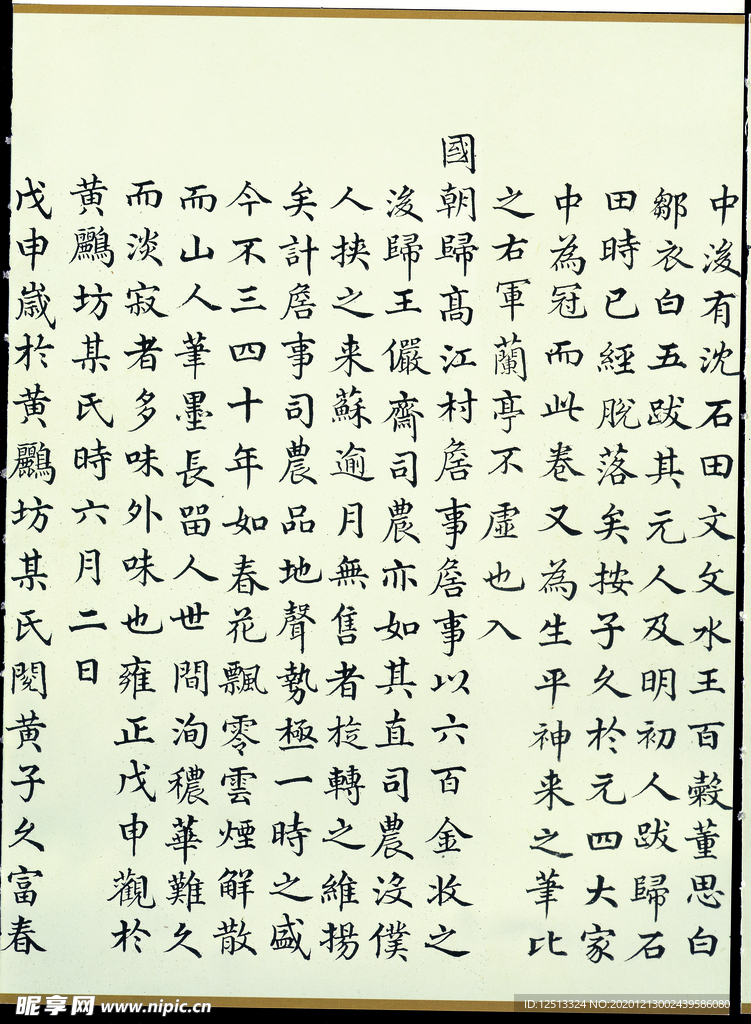 中後有沈石田文文水王百穀董思白
鄒衣白五跋其元人及明初人跋歸石
田時已經脫落矣按子久於元四大家
中為冠而此卷又為生平神来之筆比
之右軍蘭亭不虛也入
國朝歸髙江村詹事詹事以六百金收之
後歸王儼齋司農亦如其直司農沒僕
人挾之来蘇逾月無售者旋轉之維揚
矣計詹事司農品地聲勢極一時之盛
今不三四十年如春花飄零雲煙解散
而山人筆墨長留人世間洵穠華難久
而淡寂者多味外味也雍正戊申觀於
黄鸝坊某氏時六月二日
戊申歲於黄鸝坊某氏閱黄子久富春
昵享网 www.nipic.cn
ID:12513324 NO:20201213002439586080